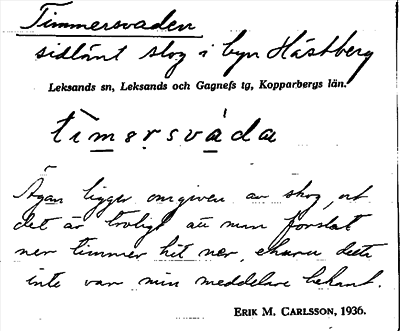 Timmersvaden
sidlänt skog i byn Hästberg
Leksands sn, Leksands och Gagnefs tg, Kopparbergs län.
timersvada
Ägan ligger omgiven av skog, och
det är troligt att man forslat
ner timmer hit ner, ehuru detta
inte var min meddelare bekant.
ERIK M. CARLSSON, 1936.